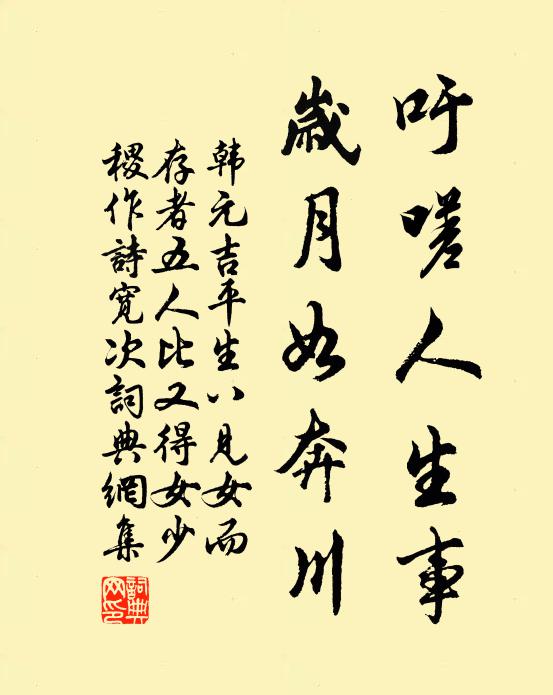 吁嗟人生事
歲月如奔川
韩元吉平生八見女而
存者五人比又得女少
稷作詩寬次詞典網集
詞典網印